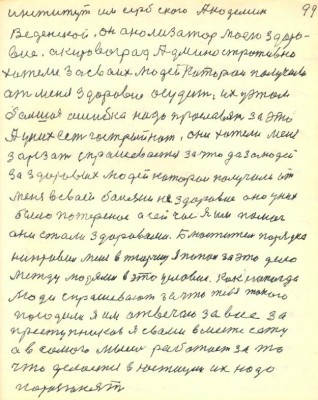 99
институт им сербского Академик
Веденской. он анализатор моево здоро-
вие. а кировоград Административно
хотели за своих людей которои получили
от меня здоровие осудит, их у этом
большая ошибка надо прославят за это
А у них ест
они хотели меня
зарезат спрашевается за что да за людей
за здоровых людей которои получили от
меня в своей болезни не здоровие оно у них
было потеряное а сей час я им помог
они стали здоровами. В
порядка
направили меня в тюрму я попал за это дело
между людями в это условие. Как никогда
люди спрашевают за что тебя такого
посадили я им отвечаю за вас за
преступников я с вами вместе сижу
а в самого мысл работает за то
что делается в настоящи их надо